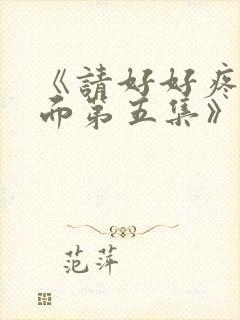 《請好好疼
而第五集》
范萍